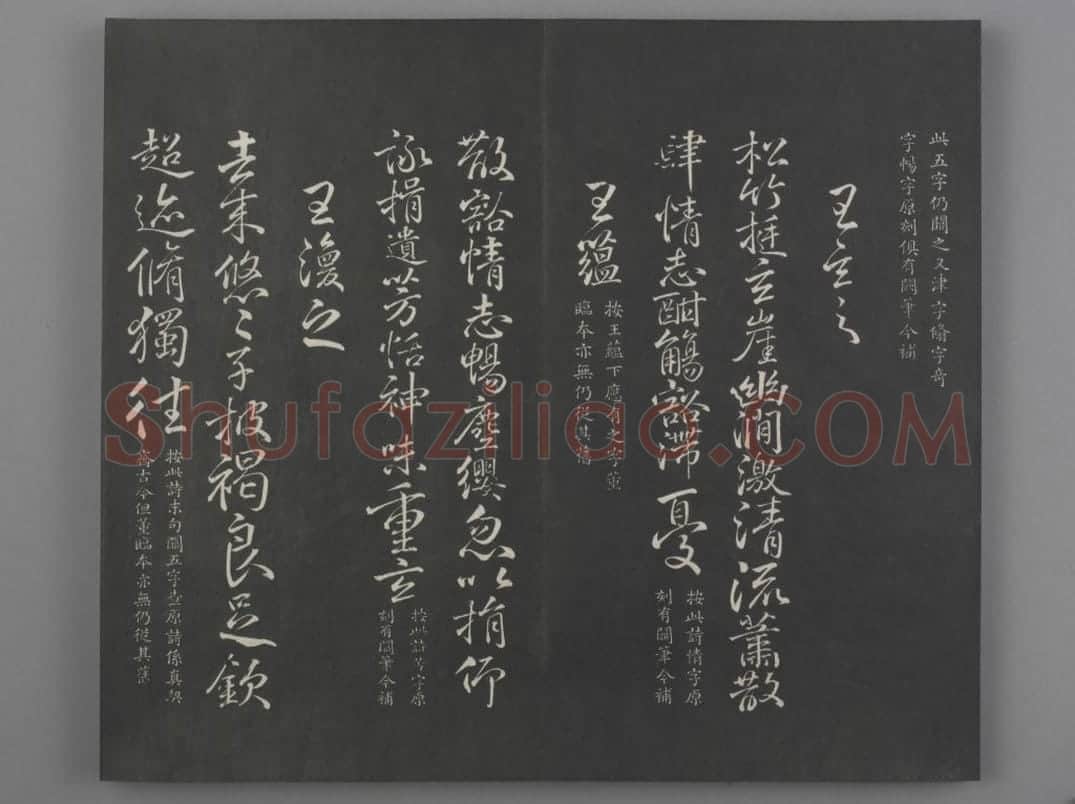 此五字仍闕之又津字脩字奇
字暢字原刻俱有闕筆今補
王玄之
松竹挺立崖幽澗激清流蕭散
肆情志酣觴豁滯憂
按此詩情字原
刻有闕筆今補
王蘊
按王蘊下應有之字董
臨本亦無仍從其舊
散豁情志暢塵纓忽以捐仰
詠挹遺芳恬神味重玄
按此詩芳字原
刻有闕筆今補
王渙之
去來悠々子披褐良足欽
超迹脩獨往
按此詩末句闕五字查原詩係真契
齊古今但董臨本亦無仍從其舊
Shufaziliao.COM